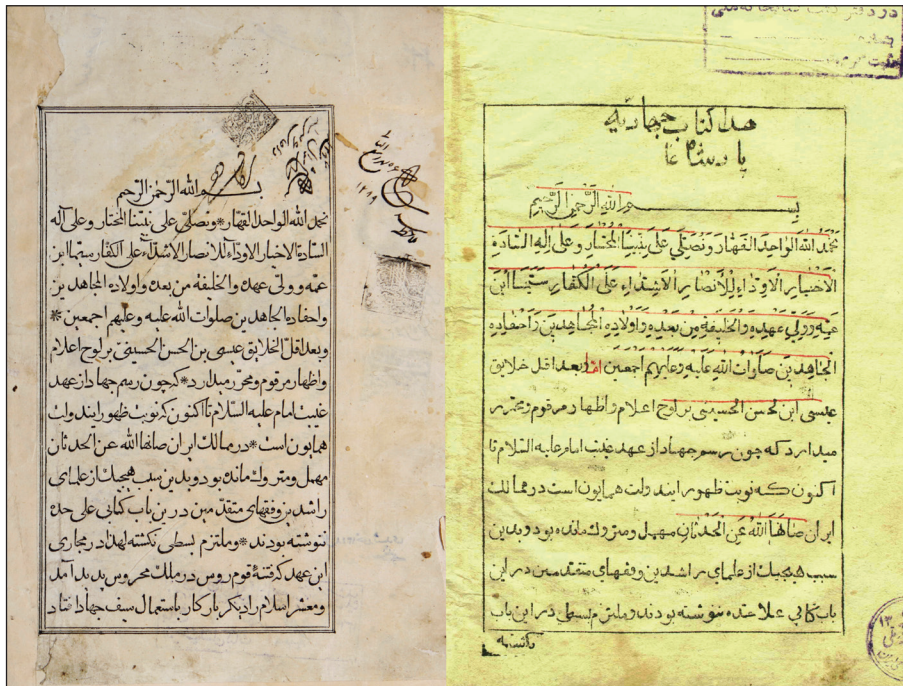 بسم الله الرحمن الرحیم
نحمد الله الواحد القهار * ونصلی علی نبینا المختار وعلی آله
السادة الاخیار الاوداء للانصار الاشداء علی الکفار سیما ابن
عمه وولی عهده والخلیفة من بعده واولاده المجاهدین
واحفاده الجاهدین صلوات الله علیه وعلیهم اجمعین *
وبعد اقل الخلایق عیسی بن الحسن الحسینی بر لوح اعلام
واظهار مرقوم ومحرر میدارد * که چون رسم جهاد از عهد
غیبت امام علیه السلام تا اکنون که نوبت ظهور ایندولت
همایون است * در ممالک ایران صانها الله عن الحدثان
مهمل ومتروک مانده بود وبدین سبب هیچیک از علمای
راشدین وفقهای متقدمین در این باب کتابی علی حده
ننوشته بودند * وملتزم بسطی نکشته لهذا در مجاری
این عهد که فتنهٔ قوم روس در ملک محروس پدید آمد
ومعشر اسلام را دیکر بار کار باستعمال سیف جهاد افتاد
۱۲۸۹
هذا کتاب جهادیه
بسم الله الرحمن الرحیم
نحمد الله الواحد القهار ونصلی علی نبینا المختار وعلی اله السادة
الاخیار الاوداء للانصار الاشداء علی الکفار سیما ابن
عمه وولی عهده والخلیفة من بعده واولاده المجاهدین واحفاده
الجاهدین صلوات الله علیه وعلیهم اجمعین اما وبعد اقل خلایق
عیسی ابن الحسن الحسینی بر لوح اعلام واظهار مرقوم ومحرر
میدارد که چون رسم جهاد از عهد غیبت امام علیه السلام تا
اکنون که نوبت ظهور ایندولت همایون است در ممالک
ایران صانها الله عن الحدثان مهمل ومتروک مانده بود وبدین
سبب هیچیک از علمای راشدین وفقهای متقدمین در این
باب کتابی علاحده ننوشته بودند وملتزم بسطی در این باب
نکشته